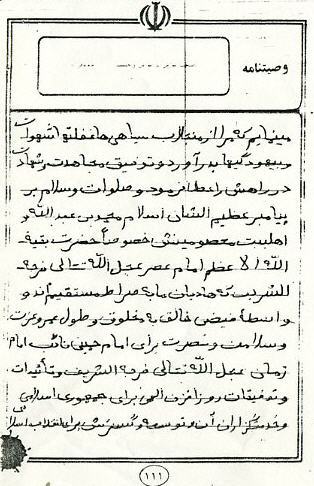 وصیتنامه
مینمایم که مرا از منجلاب سیاهی ها غفلتها شهوات
و بیهودگیها بدر آورد و توفیق مجاهدت و شهادت
در راهش را عطا فرمود و صلوات و سلام بر
پیامبر عظیم الشان اسلام محمد بن عبدالله و
اهلبیت معصومینش خصوصاً حضرت بقیة
الله الاعظم امام عصر عجل الله تعالی فرجه
الشریف که هادیان ما به صراط مستقیم اند و
واسطۀ فیض خالق به مخلوق و طول عمر و عزت
و سلامت و نصرت برای امام خمینی نائب امام
زمان عجل الله تعالی فرجه الشریف و تائیدات
و توفیقات روز افزون الهی برای جمهوری اسلامی
و خدمتگزاران آن و توسعه و گسترش برای انقلاب اسلامی
۱۱۱